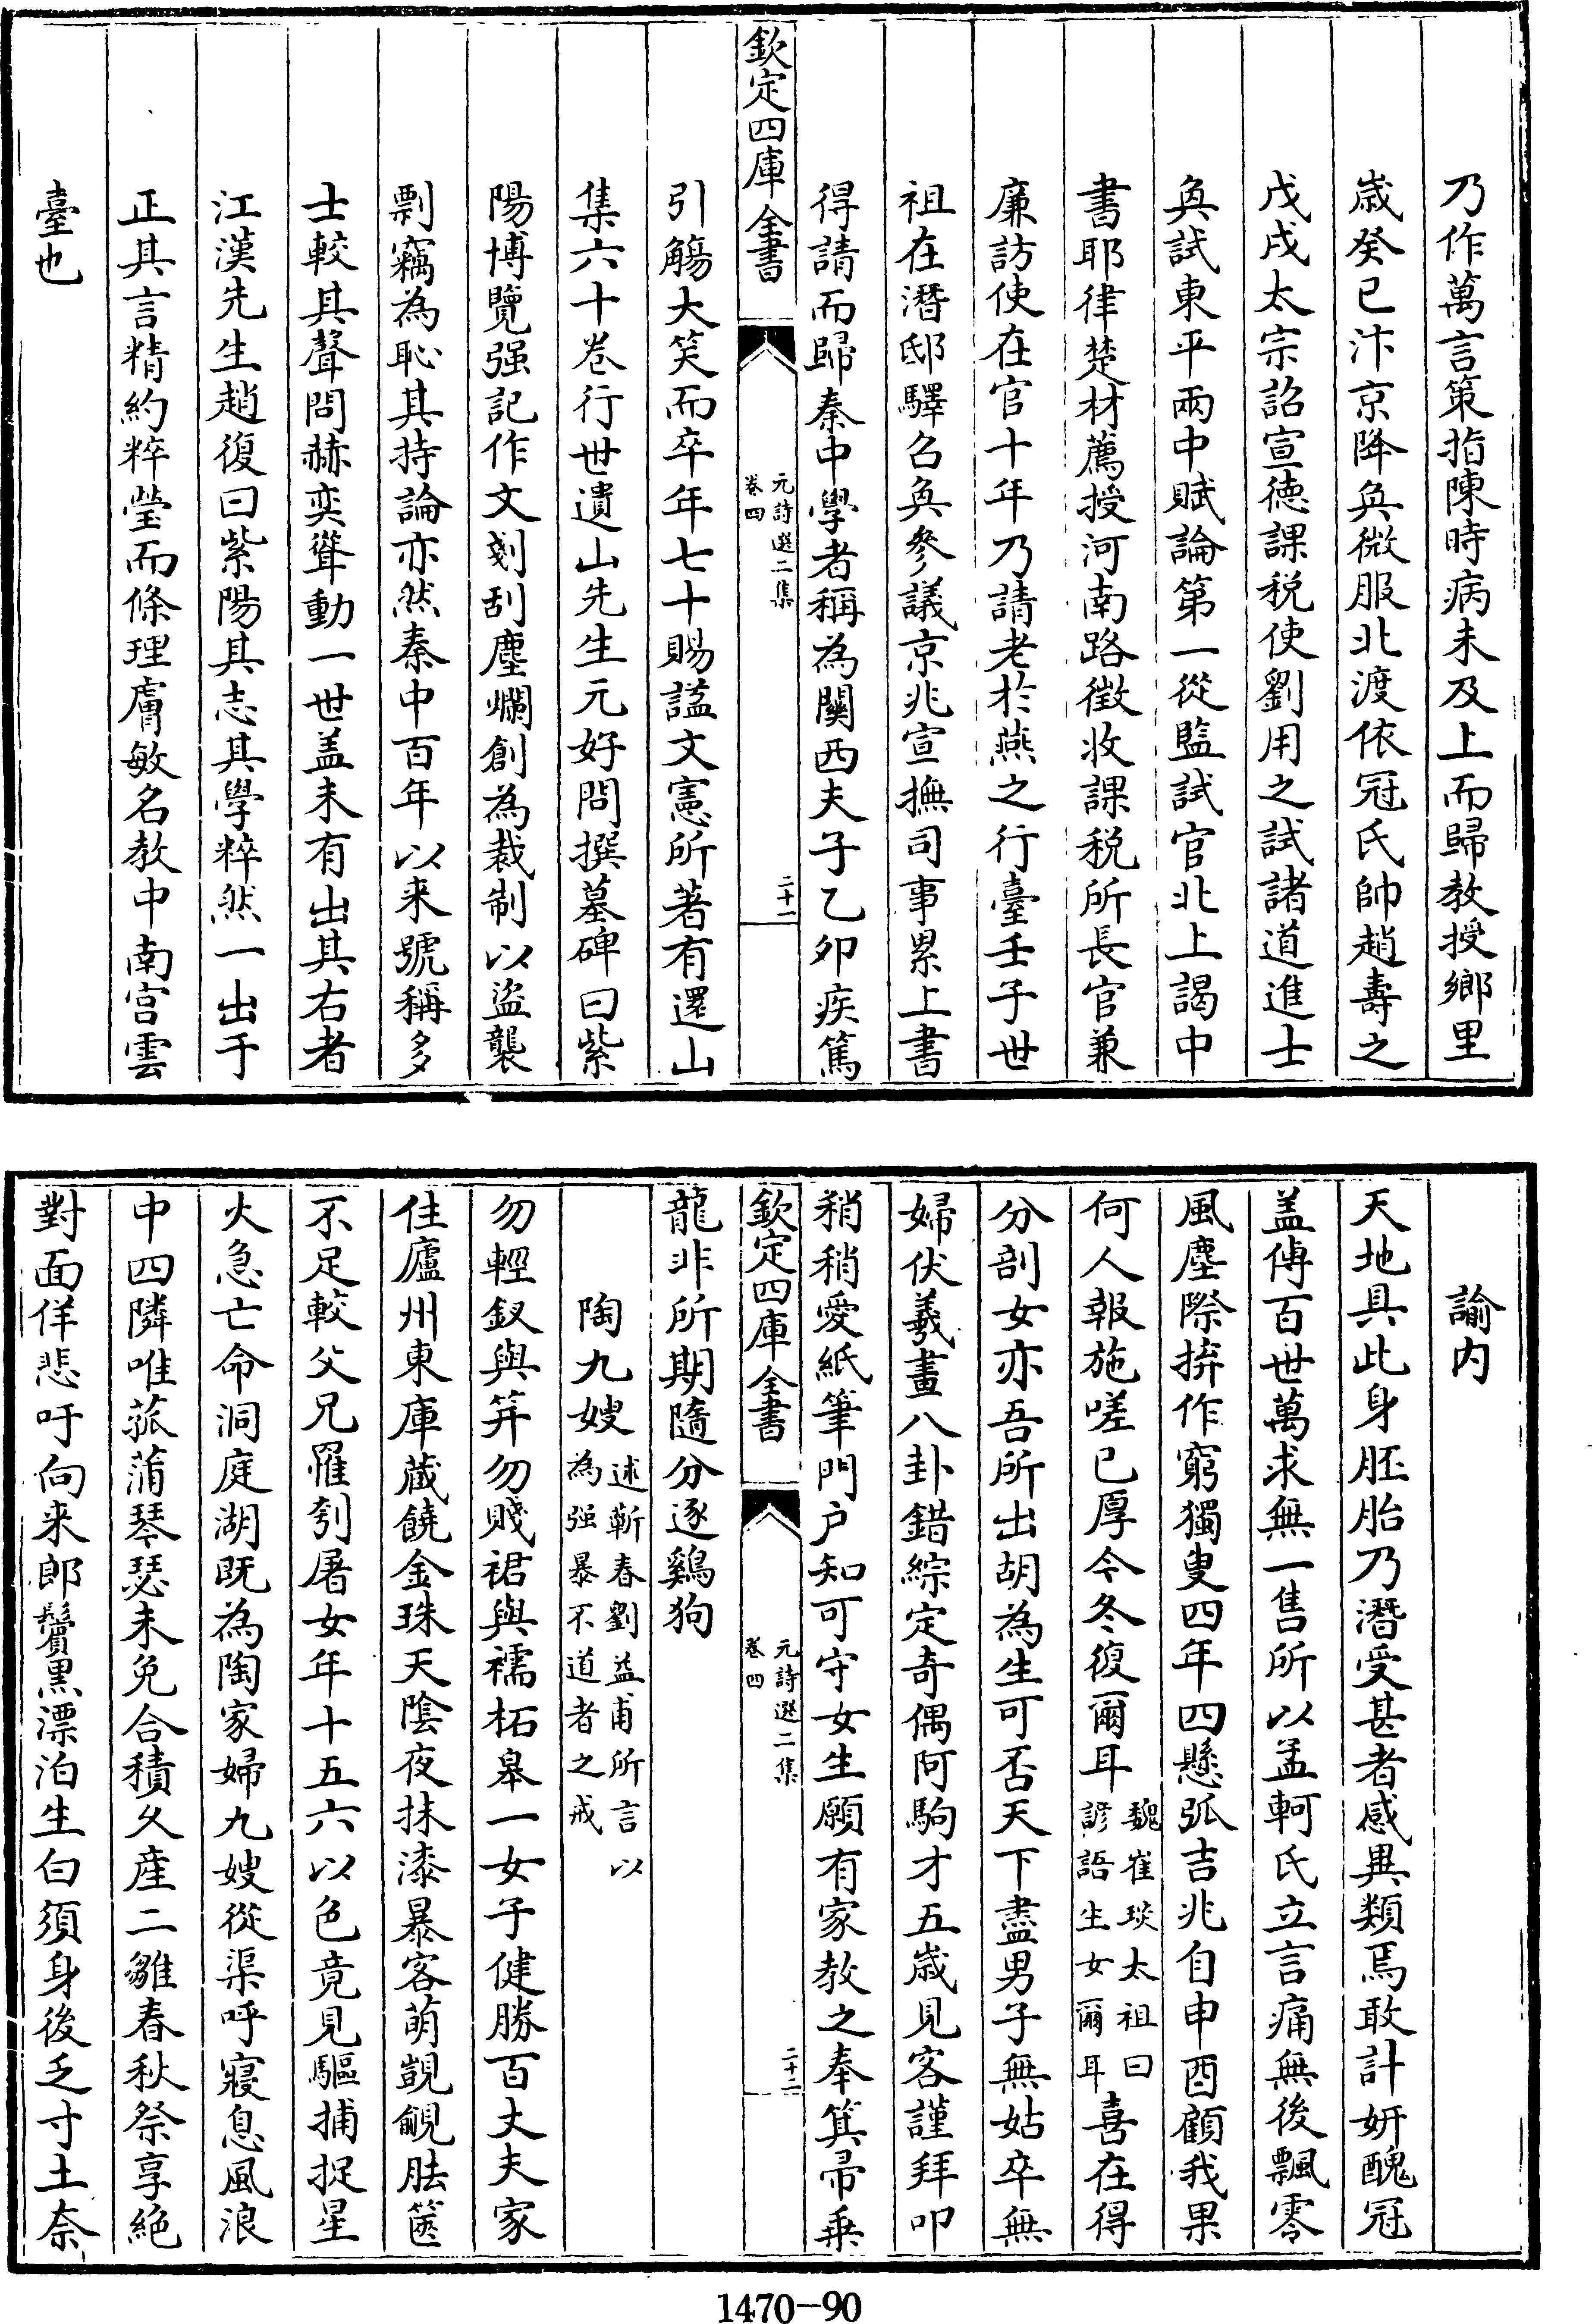 乃作萬言策指陳時病未及上而歸教授鄉里
歳癸已汴京降奐微服北渡依冠氏帥趙壽之
戊戌太宗詔宣徳課税使劉用之試諸道進士
奐試東平兩中賦論第一從監試官北上謁中
書耶律楚材薦授河南路徴收課税所長官兼
廉訪使在官十年乃請老於燕之行臺壬子世
祖在潛邸驛召奐參議京兆宣撫司事累上書
得請而歸秦中學者稱為關西夫子乙夘疾篤
欽定四庫全書
元詩選二集
卷四
二十一
引觴大笑而卒年七十賜諡文憲所著有還山
集六十卷行世遺山先生元好問撰墓碑曰紫
陽博覽强記作文剗刮塵爛創為裁制以盜襲
剽竊為恥其持論亦然秦中百年以来號稱多
士較其聲問赫奕聳動一世盖未有出其右者
江漢先生趙復曰紫陽其志其學粹然一出于
正其言精約粹瑩而條理膚敏名教中南宫雲
臺也
諭内
天地具此身胚胎乃潛受甚者感異類焉敢計妍醜冠
盖傳百世萬求無一售所以孟軻氏立言痛無後飄零
風塵際拚作窮獨叟四年四懸弧吉兆自申酉顧我果
何人報施嗟已厚今冬復爾耳
魏崔琰太祖曰
諺語生女爾耳
喜在得
分剖女亦吾所出胡為生可否天下盡男子無姑卒無
婦伏羲畫八卦錯綜定奇偶阿駒才五歳見客謹拜叩
稍稍愛紙筆門户知可守女生願有家教之奉箕帚乗
欽定四庫全書
元詩選二集
卷四
二十二
龍非所期隨分逐鷄狗
陶九嫂
述蘄春劉益甫所言以
為强暴不道者之戒
勿輕釵與笄勿賤裙與襦柘皋一女子健勝百丈夫家
住廬州東庫藏饒金珠天陰夜抹漆暴客萌覬覦胠篋
不足較父兄罹刳屠女年十五六以色竟見驅捕捉星
火急亡命洞庭湖既為陶家婦九嫂從渠呼寢息風浪
中四隣唯菰蒲琴瑟未免合積久産二雛春秋祭享絶
對面佯悲吁向来郎鬢黒漂泊生白須身後乏寸土奈
1470-90